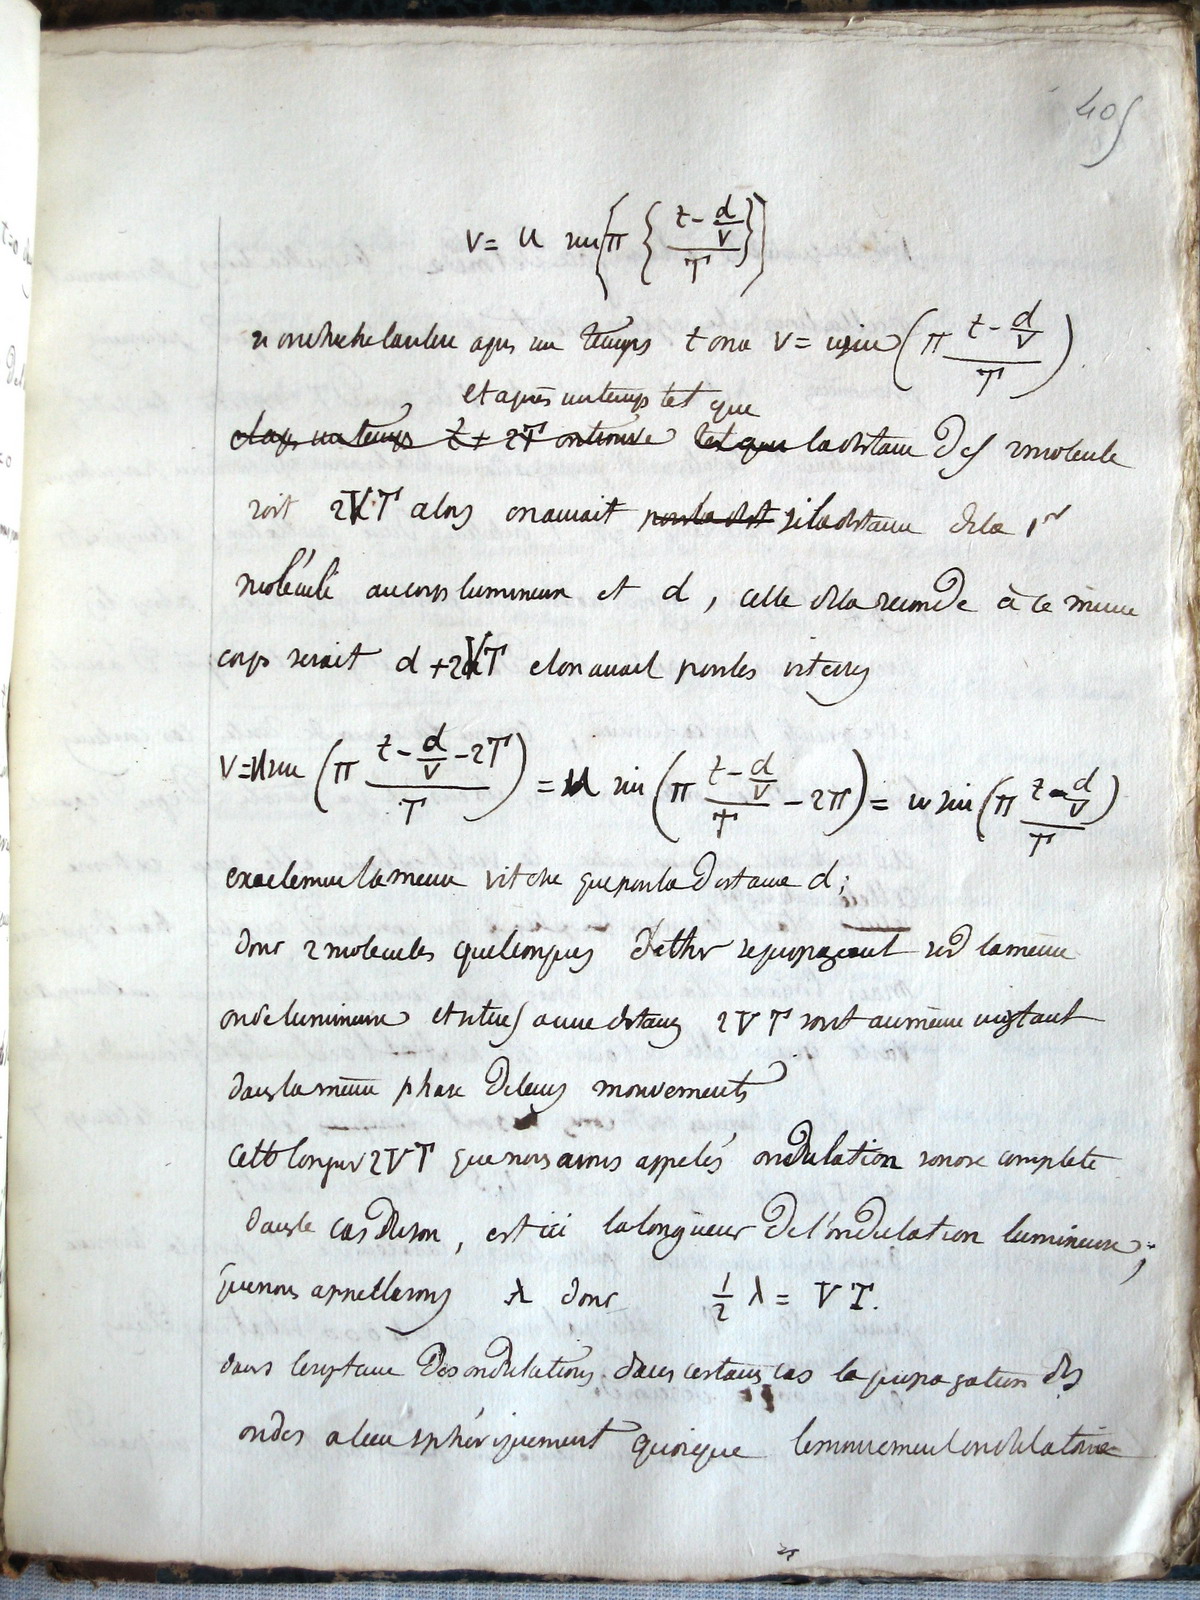 405
v = u sin{π {(t - d/V)/T}}
on cherche la v après un temps t on a v = u sin (π (t - d/V)/T)
et après un temps tel que
et après un temps t + 2T on trouve tel que la distance des 2 molecule
soit 2VT alors on aurait pour la dist si la distance de la 1re
molécule au corps lumineux et d, celle de la seconde à ce même
corps serait d + 2VT et on aurait pour les vitesses
v = u sin (π (t - d/V - 2T)/T) = u sin (π (t - d/V)/T - 2π) = u sin (π (t - d/V)/T)
exactement la meme vitesse que pour la distance d;
donc 2 molecules quelconques d'éther se propageant sud la même
onde lumineuse et situés a une distance 2VT sont au même instant
dans la même phase de leurs mouvements
cette longueur 2VT que nous avons appelés ondulation sonore complete
dans le cas du son, est ici la longueur de l'ondulation lumineuse;
que nous appellerons λ donc ½ λ = VT.
dans le systeme des ondulations dans certains cas la propagation des
ondes a lieu sphériquement quoique le mouvement ondulatoire